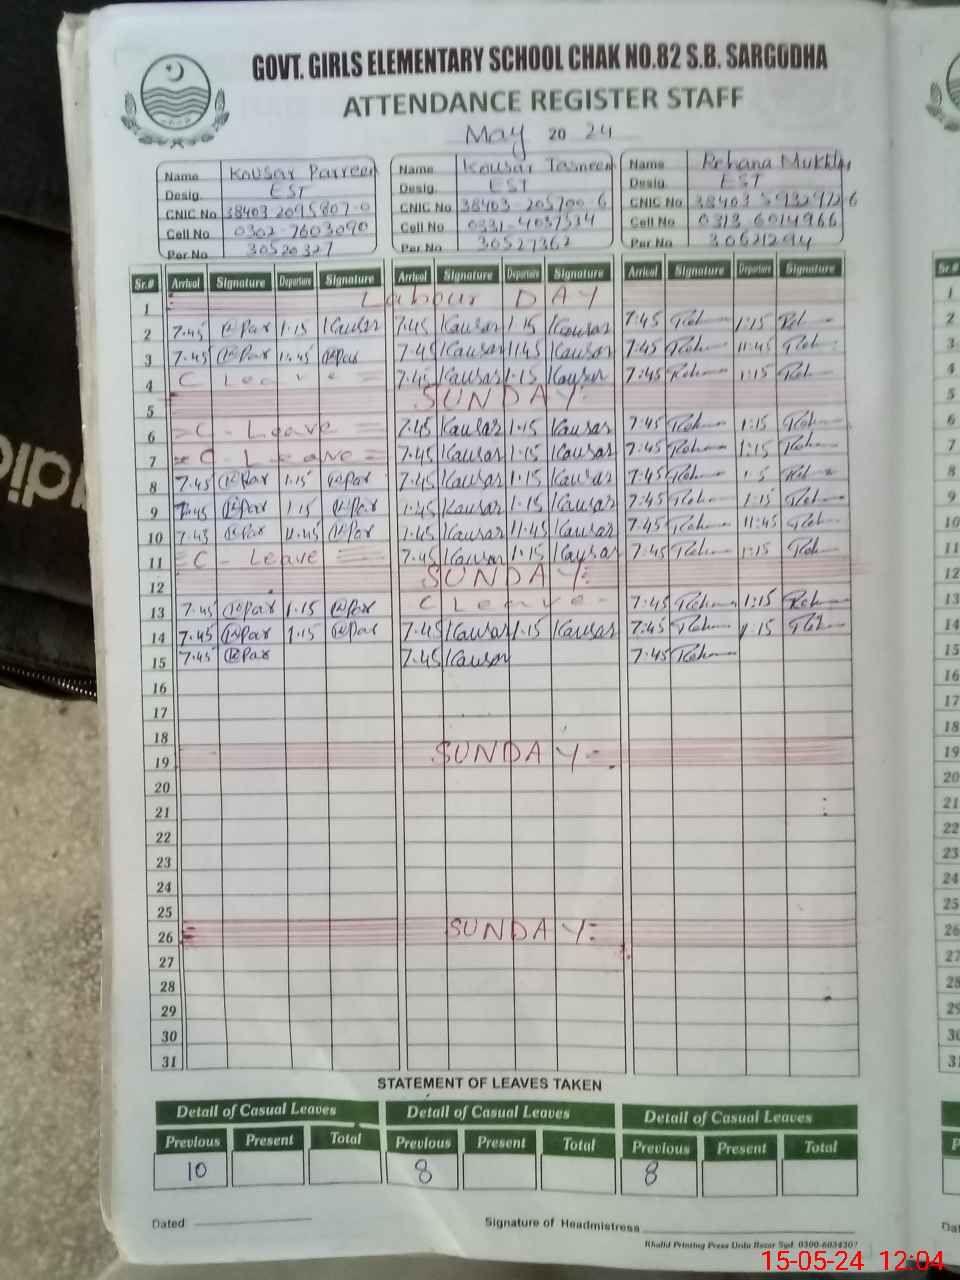 GOVT. GIRLS ELEMENTARY SCHOOL CHAK NO.82 S.B. SARGODHA
ATTENDANCE REGISTER STAFF
May 20 24
Name Kousar Parveen Name Kousar Tasneem Name Rehana Mukhtar
Desig. EST Desig. EST Desig. EST
CNIC No 38403 2095807-0 CNIC No 38403 205700 6 CNIC No 38403
Cell No 0302-7603090 Cell No 0331-4037534 Cell No 0313-6014966
Per No 30520327 Per No 30527362 Per No 30621294
Sr.# Arrival Signature Departure Signature Arrival Signature Departure Signature Arrival Signature Departure Signature
1 Labour DAY
2 7.45 @Par 1.15 Kausar 7.45 Kausar 1.15 Kausar 7:45 Reh 1:15 Reh
3 7.45 @Par 11.45 @Par 7.45 Kausar 11.45 Kausar 7:45 Reh 11:45 Reh
4 C Leave = 7.45 Kausar 1.15 Kausar 7:45 Reh 1:15 Reh
5 SUNDAY:
6 =C-Leave= 7.45 Kausar 1.15 Kausar 7:45 Reh 1:15 Reh
7 =C-Leave= 7.45 Kausar 1.15 Kausar 7:45 Reh 1:15 Reh
8 7.45 @Par 1.15 @Par 7.45 Kausar 1.15 Kausar 7:45 Reh Reh
9 7.45 @Par 1.15 @Par 7.45 Kausar 1.15 Kausar 7:45 Reh 1:15 Reh
10 7.45 @Par 11.45 @Par 7.45 Kausar 11.45 Kausar 7:45 Reh 11:45 Reh
11 =C-Leave= 7.45 Kausar 1.15 Kausar 7:45 Reh 1:15 Reh
12 SUNDAY:
13 7.45 @Par 1.15 @Par C Leave- 7:45 Reh 1:15 Reh
14 7.45 @Par 1.15 @Par 7.45 Kausar 1.15 Kausar 7:45 Reh 1:15 Reh
15 7.45 @Par 7.45 Kausar 7:45 Reh
16
17
18
19 SUNDAY=
20
21
22
23
24
25
26 SUNDAY:
27
28
29
30
31
STATEMENT OF LEAVES TAKEN
Detail of Casual Leaves Detail of Casual Leaves Detail of Casual Leaves
Previous Present Total Previous Present Total Previous Present Total
10 8 8
Dated Signature of Headmistress
Khalid Printing Press Urdu Bazar Sgd.
15-05-24 12:04